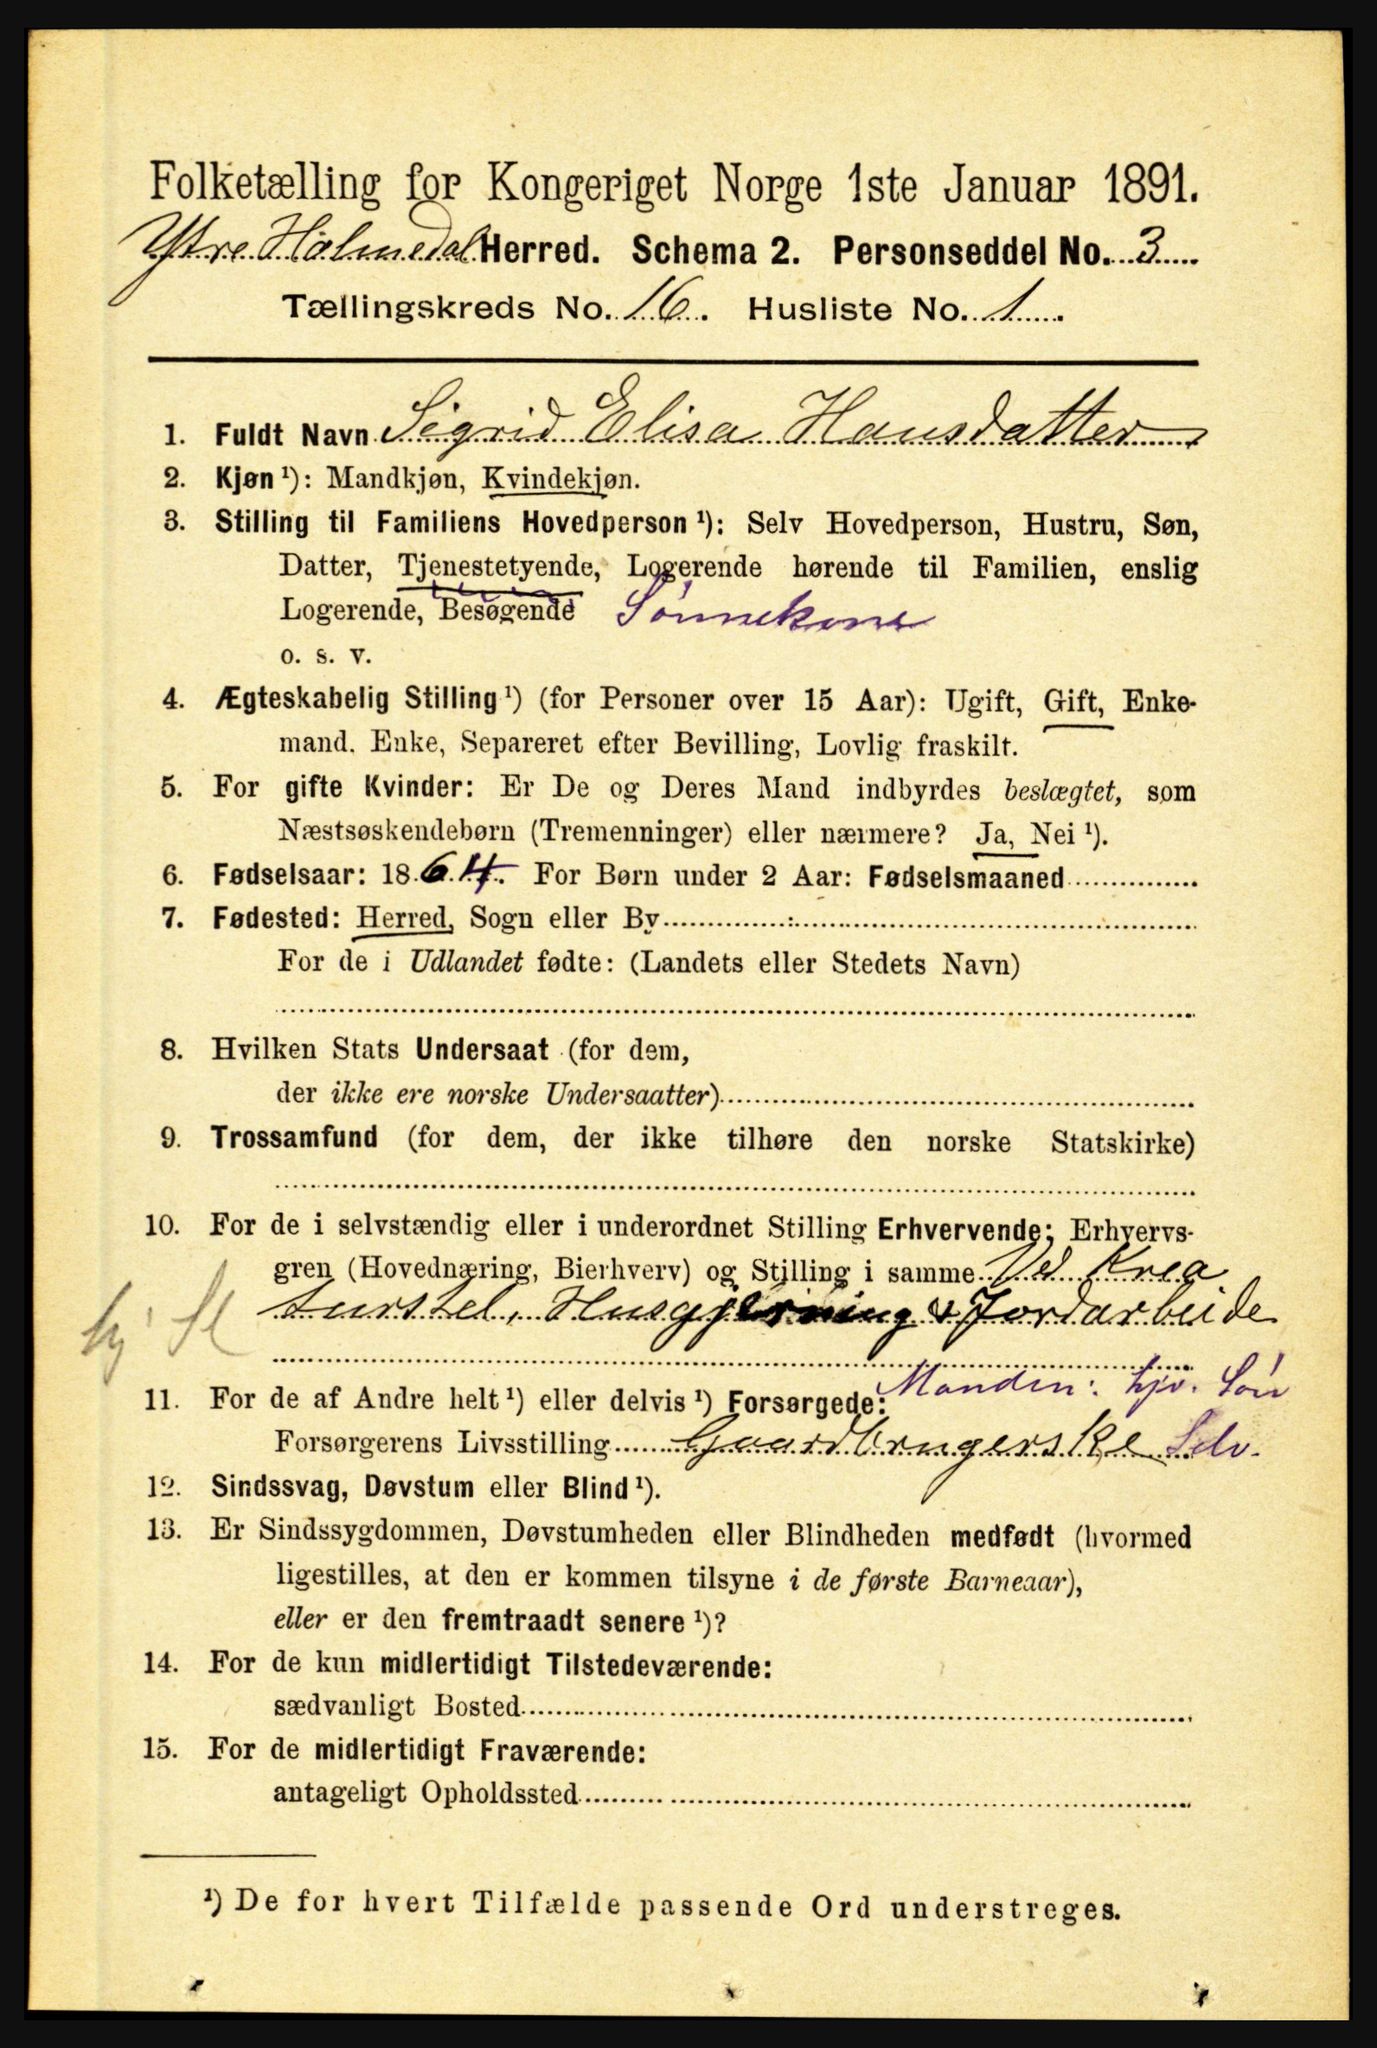 Folketælling for Kongeriget Norge 1ste Januar 1891.
Ytre Holmedal Herred. Schema 2. Personseddel No. 3
Tællingskreds No. 16. Husliste No. 1
1. Fuldt Navn Sigrid Elisa Hansdatter
2. Kjøn ¹): Mandkjøn, Kvindekjøn.
3. Stilling til Familiens Hovedperson ¹): Selv Hovedperson, Hustru, Søn,
Datter, Tjenestetyende, Logerende hørende til Familien, enslig
Logerende, Besøgende Sønnekone
o. s. v.
4. Ægteskabelig Stilling ¹) (for Personer over 15 Aar): Ugift, Gift, Enke-
mand. Enke, Separeret efter Bevilling, Lovlig fraskilt.
5. For gifte Kvinder: Er De og Deres Mand indbyrdes beslægtet, som
Næstsøskendebørn (Tremenninger) eller nærmere? Ja, Nei ¹).
6. Fødselsaar: 1864. For Børn under 2 Aar: Fødselsmaaned
7. Fødested: Herred, Sogn eller By
For de i Udlandet fødte: (Landets eller Stedets Navn)
8. Hvilken Stats Undersaat (for dem,
der ikke ere norske Undersaatter)
9. Trossamfund (for dem, der ikke tilhøre den norske Statskirke)
10. For de i selvstændig eller i underordnet Stilling Erhvervende; Erhvervs-
gren (Hovednæring, Bierhverv) og Stilling i samme Ved Krea
turstel, Husgjerning & Jordarbeide
11. For de af Andre helt ¹) eller delvis ¹) Forsørgede: Manden: hjv. Søn
Forsørgerens Livsstilling Gaardbrugerske Selv.
12. Sindssvag, Døvstum eller Blind ¹).
13. Er Sindssygdommen, Døvstumheden eller Blindheden medfødt (hvormed
ligestilles, at den er kommen tilsyne i de første Barneaar),
eller er den fremtraadt senere ¹)?
14. For de kun midlertidigt Tilstedeværende:
sædvanligt Bosted
15. For de midlertidigt Fraværende:
antageligt Opholdssted
¹) De for hvert Tilfælde passende Ord understreges.